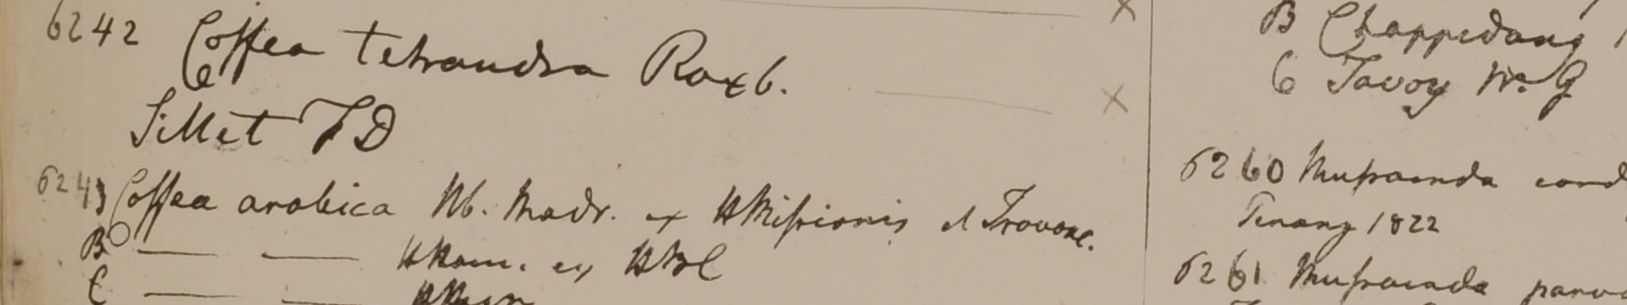 6242 Coffea tetrandra Roxb.
Sillet FD
6243 Coffea arabica Hb. Madr. ex HMissionis et Travanc.
B — — HHam. ex HBC
C — —
B Chappedong
C Tavoy W. G
6260 Mussaenda cord
Penang 1822
6261 Mussaenda parv